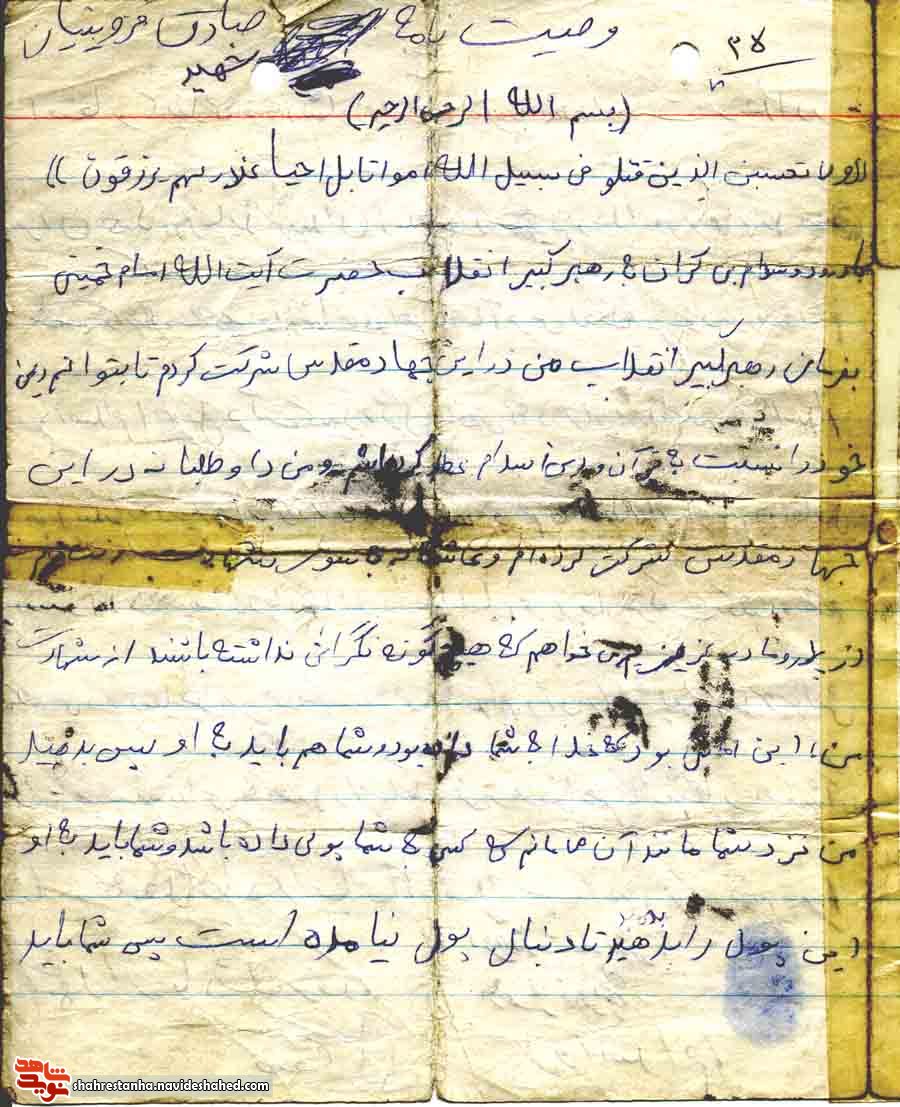 ۳۸
وصیت نامه صادق قزوینیان
شهید
(بسم الله الرحمن الرحیم)
((ولا تحسبن الذین قتلو فی سبیل الله امواتا بل احیا عند ربهم یرزقون))
سلام بی کران به رهبر کبیر انقلاب حضرت آیت الله امام خمینی
بفرمان رهبر کبیر انقلاب من در این جهاد مقدس شرکت کردم تا بتوانم دین
خود را نسبت به قرآن و دین اسلام باشم و من داوطلبانه در این
جهاد مقدس شرکت کرده ام و
از پدر و مادر عزیزم می خواهم که هیچ گونه نگرانی نداشته باشند از شهادت
من این بود که خدا به شما داده بود و شما هم باید به او پس بدهید
من نزد شما مانند آن مانم که کسی به شما پولی داده باشد و شما باید به او
این پول را بدهید تا دنبال پول نیامده است پس شما باید
نوید شاهد
shahrestanha.navideshahed.com